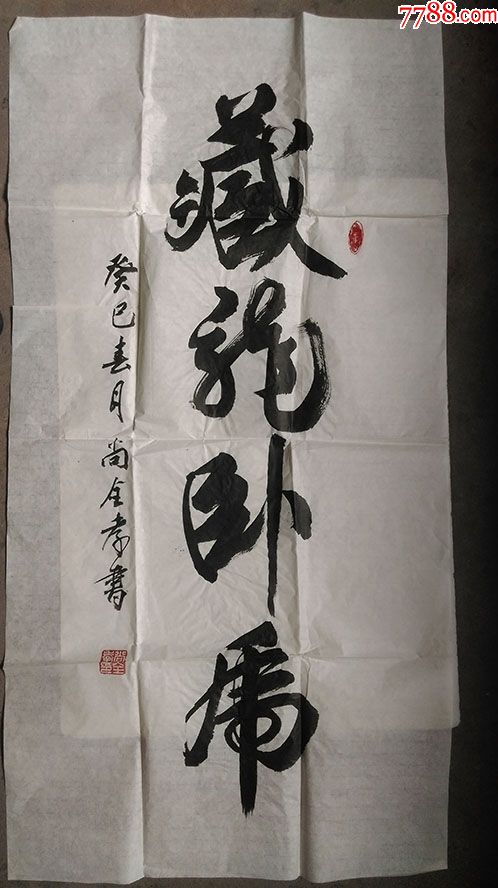 7788.com
藏龍卧虎
癸巳春月尚全孝書